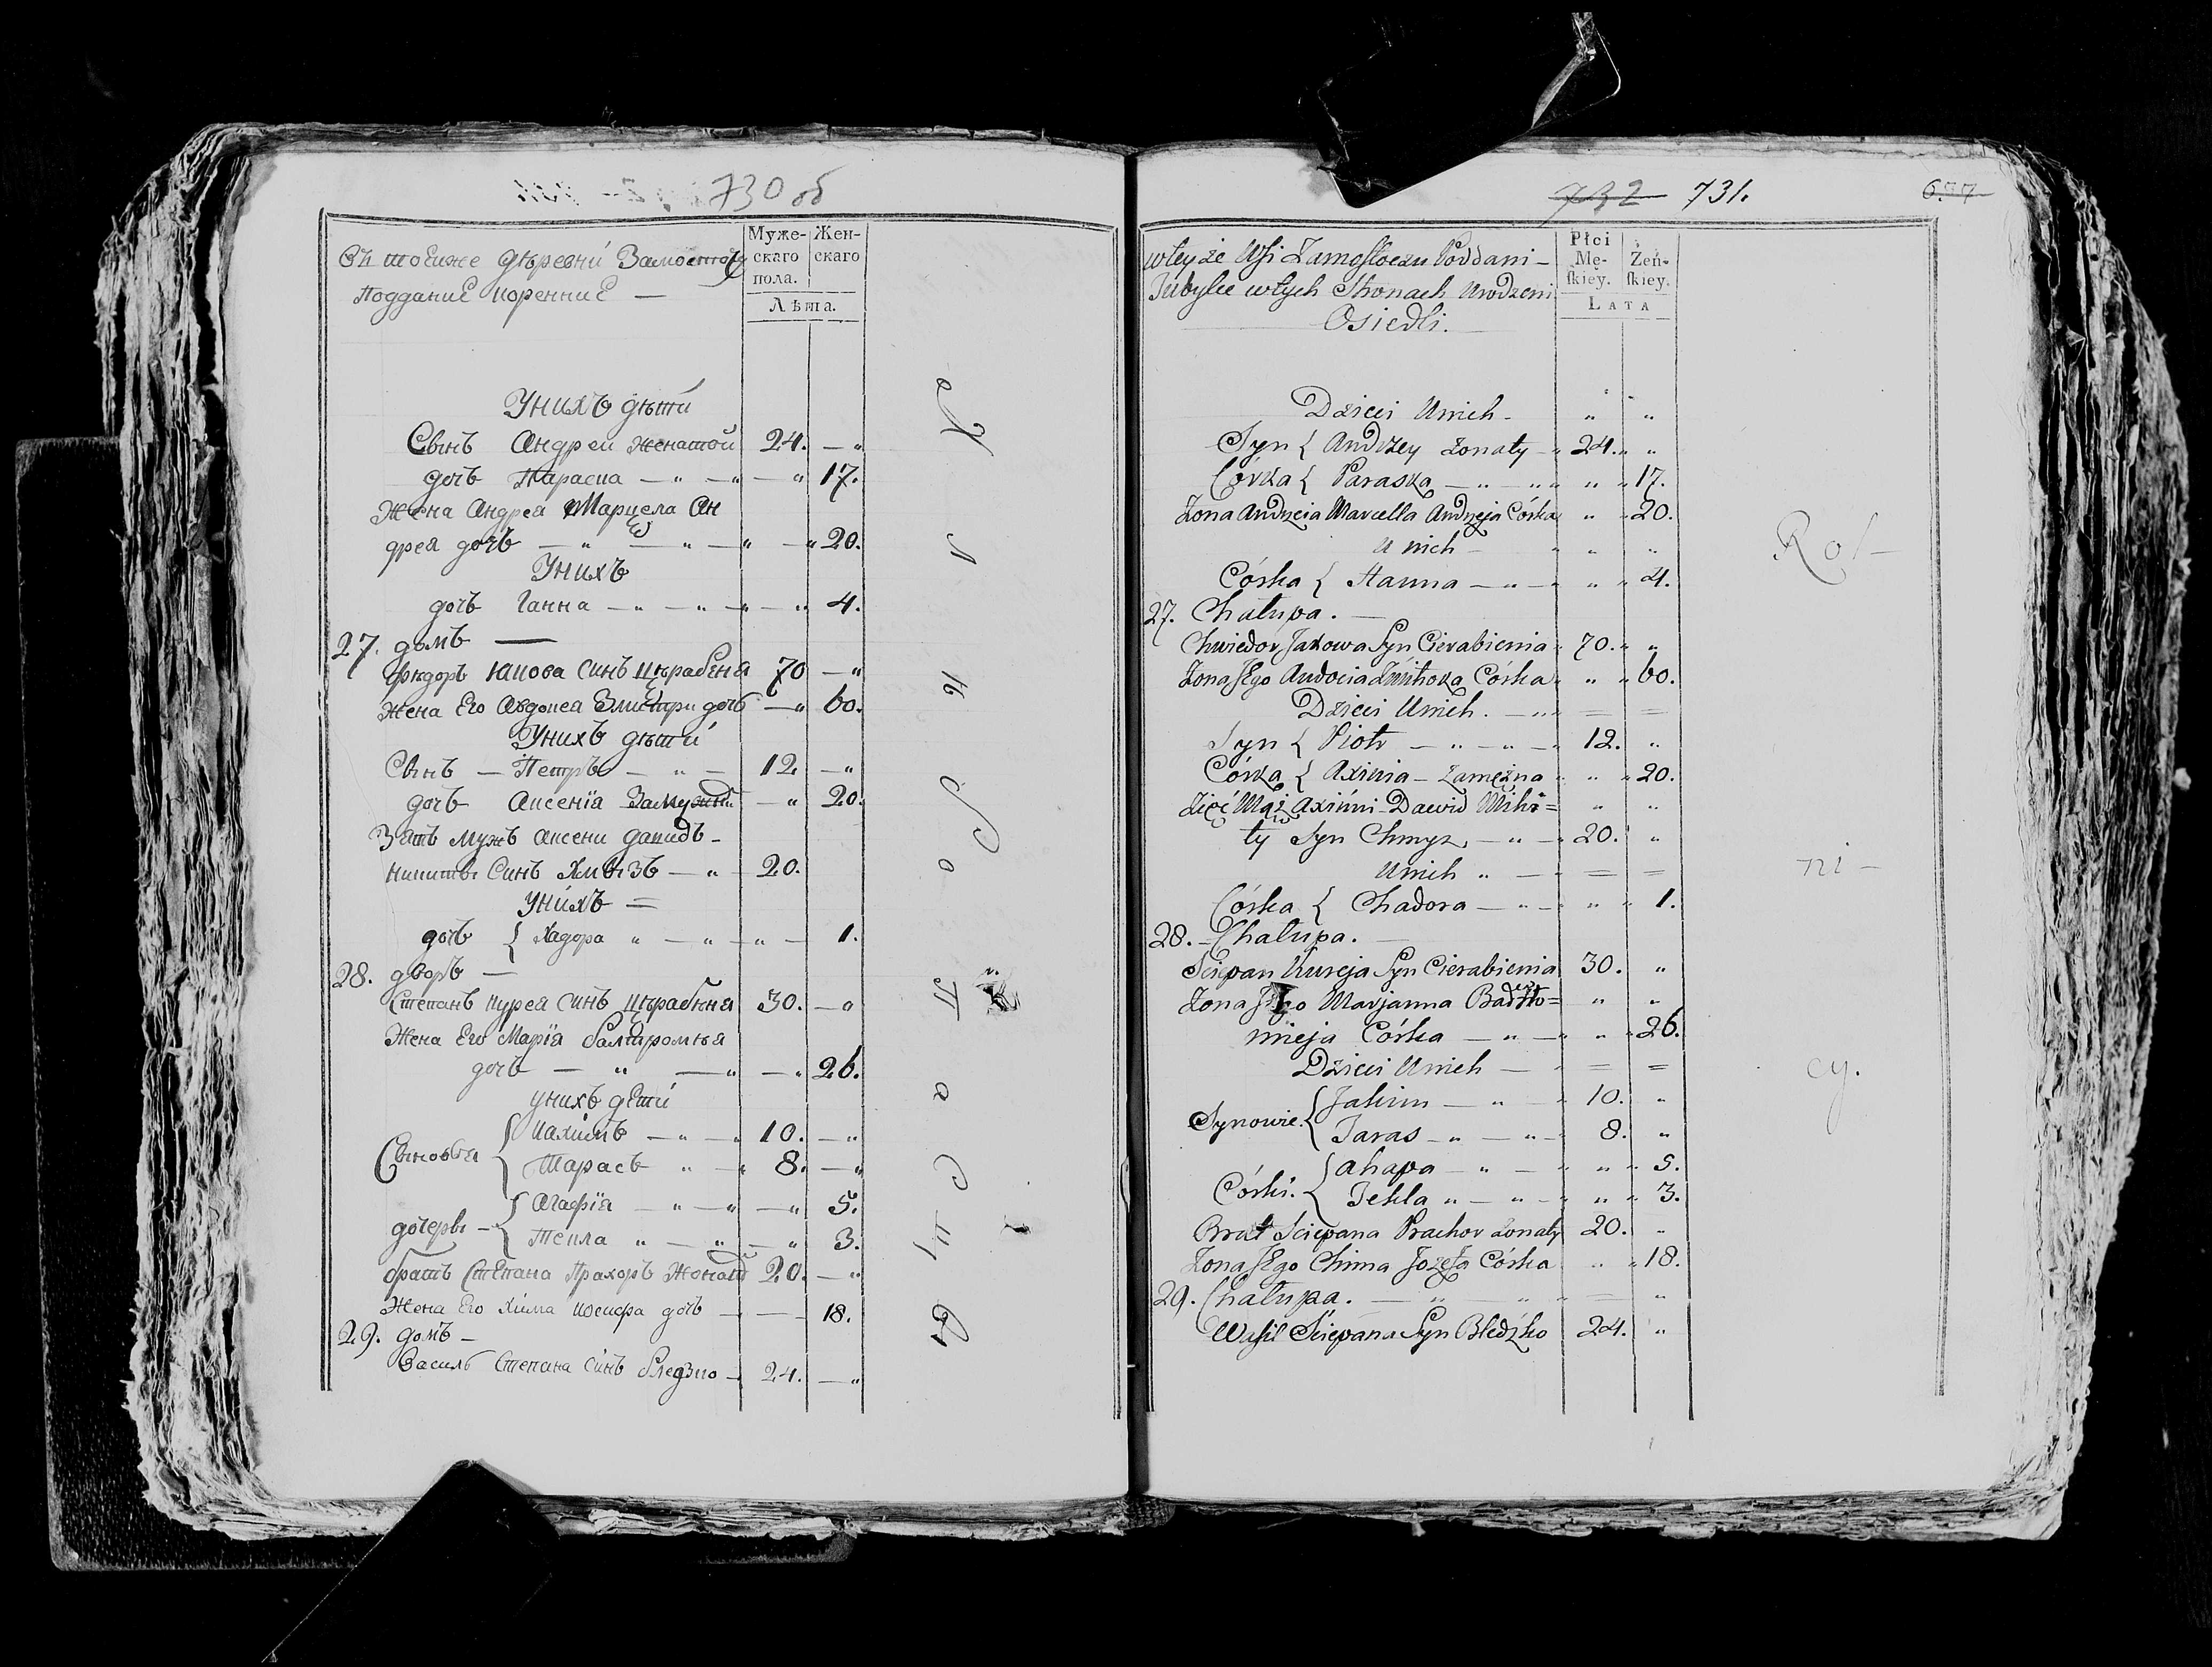 730 об
Въ тоеиже деревни Замосточу
Поддание коренние —
Муже-
скаго
пола.
Жен-
скаго
Лѣта.
Унихъ дѣти
Сынъ Андрей женатой 24. — „
дочь Параска — „ — „ — „ 17.
Жена Андрея Марцела Ан
дрея дочь — „ — „ — „ — „ 20.
Унихъ
дочь Ганна — „ — „ — „ — „ 4.
27. домъ —
Якова Синъ Цѣрабеня 70 — „
Жена Его Авдокея дочь — „ 60.
Унихъ дѣти
Сынъ — Петръ — „ — 12. — „
дочь Аксенія Замужнѣ — „ 20.
Зять мужъ Аксени давидъ —
никиты Синъ Хмызъ — „ — 20.
Унихъ =
дочь { Хадора „ — „ — „ — 1.
28. дворъ —
Степанъ курея Синъ Цѣрабеня 30. — „
Жена Его Марія
дочь — „ — „ — „ 26.
унихъ дети
Сыновья { Иахимъ — „ — „ 10. — „
Тарасъ „ — „ 8. — „
дочеры — { Агафія — „ — „ — „ 5.
Текла „ — „ — „ 3.
братъ Степана Прахоръ Жонатй 20. — „
Жена Его Хима Иосифа дочь — — 18.
29. домъ —
Василь Степана Синъ бледзко — 24. — „
Х л ѣ б о п а ш ц ы
732 731.
637
wteyże Wsi Zamostoczu Poddani —
Tubylce wtych Stronach Urodzeni
Osiedli.
Płci
Mę-
ſkiey.
Żeń-
ſkiey.
Lata
Dzieci Unich — „ „
Syn { Andrzey Żonaty — „ 24. „ „
Córka { Paraska — „ — „ „ „ „ 17.
Żona Andrzeia Marcella Andrzeja Córka „ „ 20.
U nich — „ „ „
Córka { Hanna — „ — „ „ „ 4.
27. Chałupa. —
Chwiedor Jakowa Syn Cierabienia „ 70. „ „
Żona Jego Audocia Córka „ „ „ 60.
Dzieci Unich. — „ „ = =
Syn { Piotr — „ — „ — „ 12. „
Córka { Axinia — Zamężna „ „ „ 20.
Zięć Mąż Axinni Dawid Miki= „ „
ty Syn Chmyz, — „ — „ 20. „
Unich „ — „ = =
Córka { Chadora — „ — „ „ „ 1.
28. — Chałupa. —
Sciepan Kureja Syn Cierabienia 30. „
Żona Jego Marjanna Bartło= „ „
mieja Córka — „ — „ „ „ 26.
Dzieci Unich — „ = =
Synowie. { Jakim — „ — „ 10. „
Taras — „ — „ — 8. „
Córki. { Ahapa — „ — „ „ „ 5.
Tekla „ — „ — „ „ „ 3.
Brat Sciepana Prachor Żonaty 20. „
Żona Jego Chima Jozefa Córka „ „ 18.
29. Chałupa. — „ — „ „ = „
Wasil Sciepana Syn Bledźko 24. „
Rol —
ni —
cy.